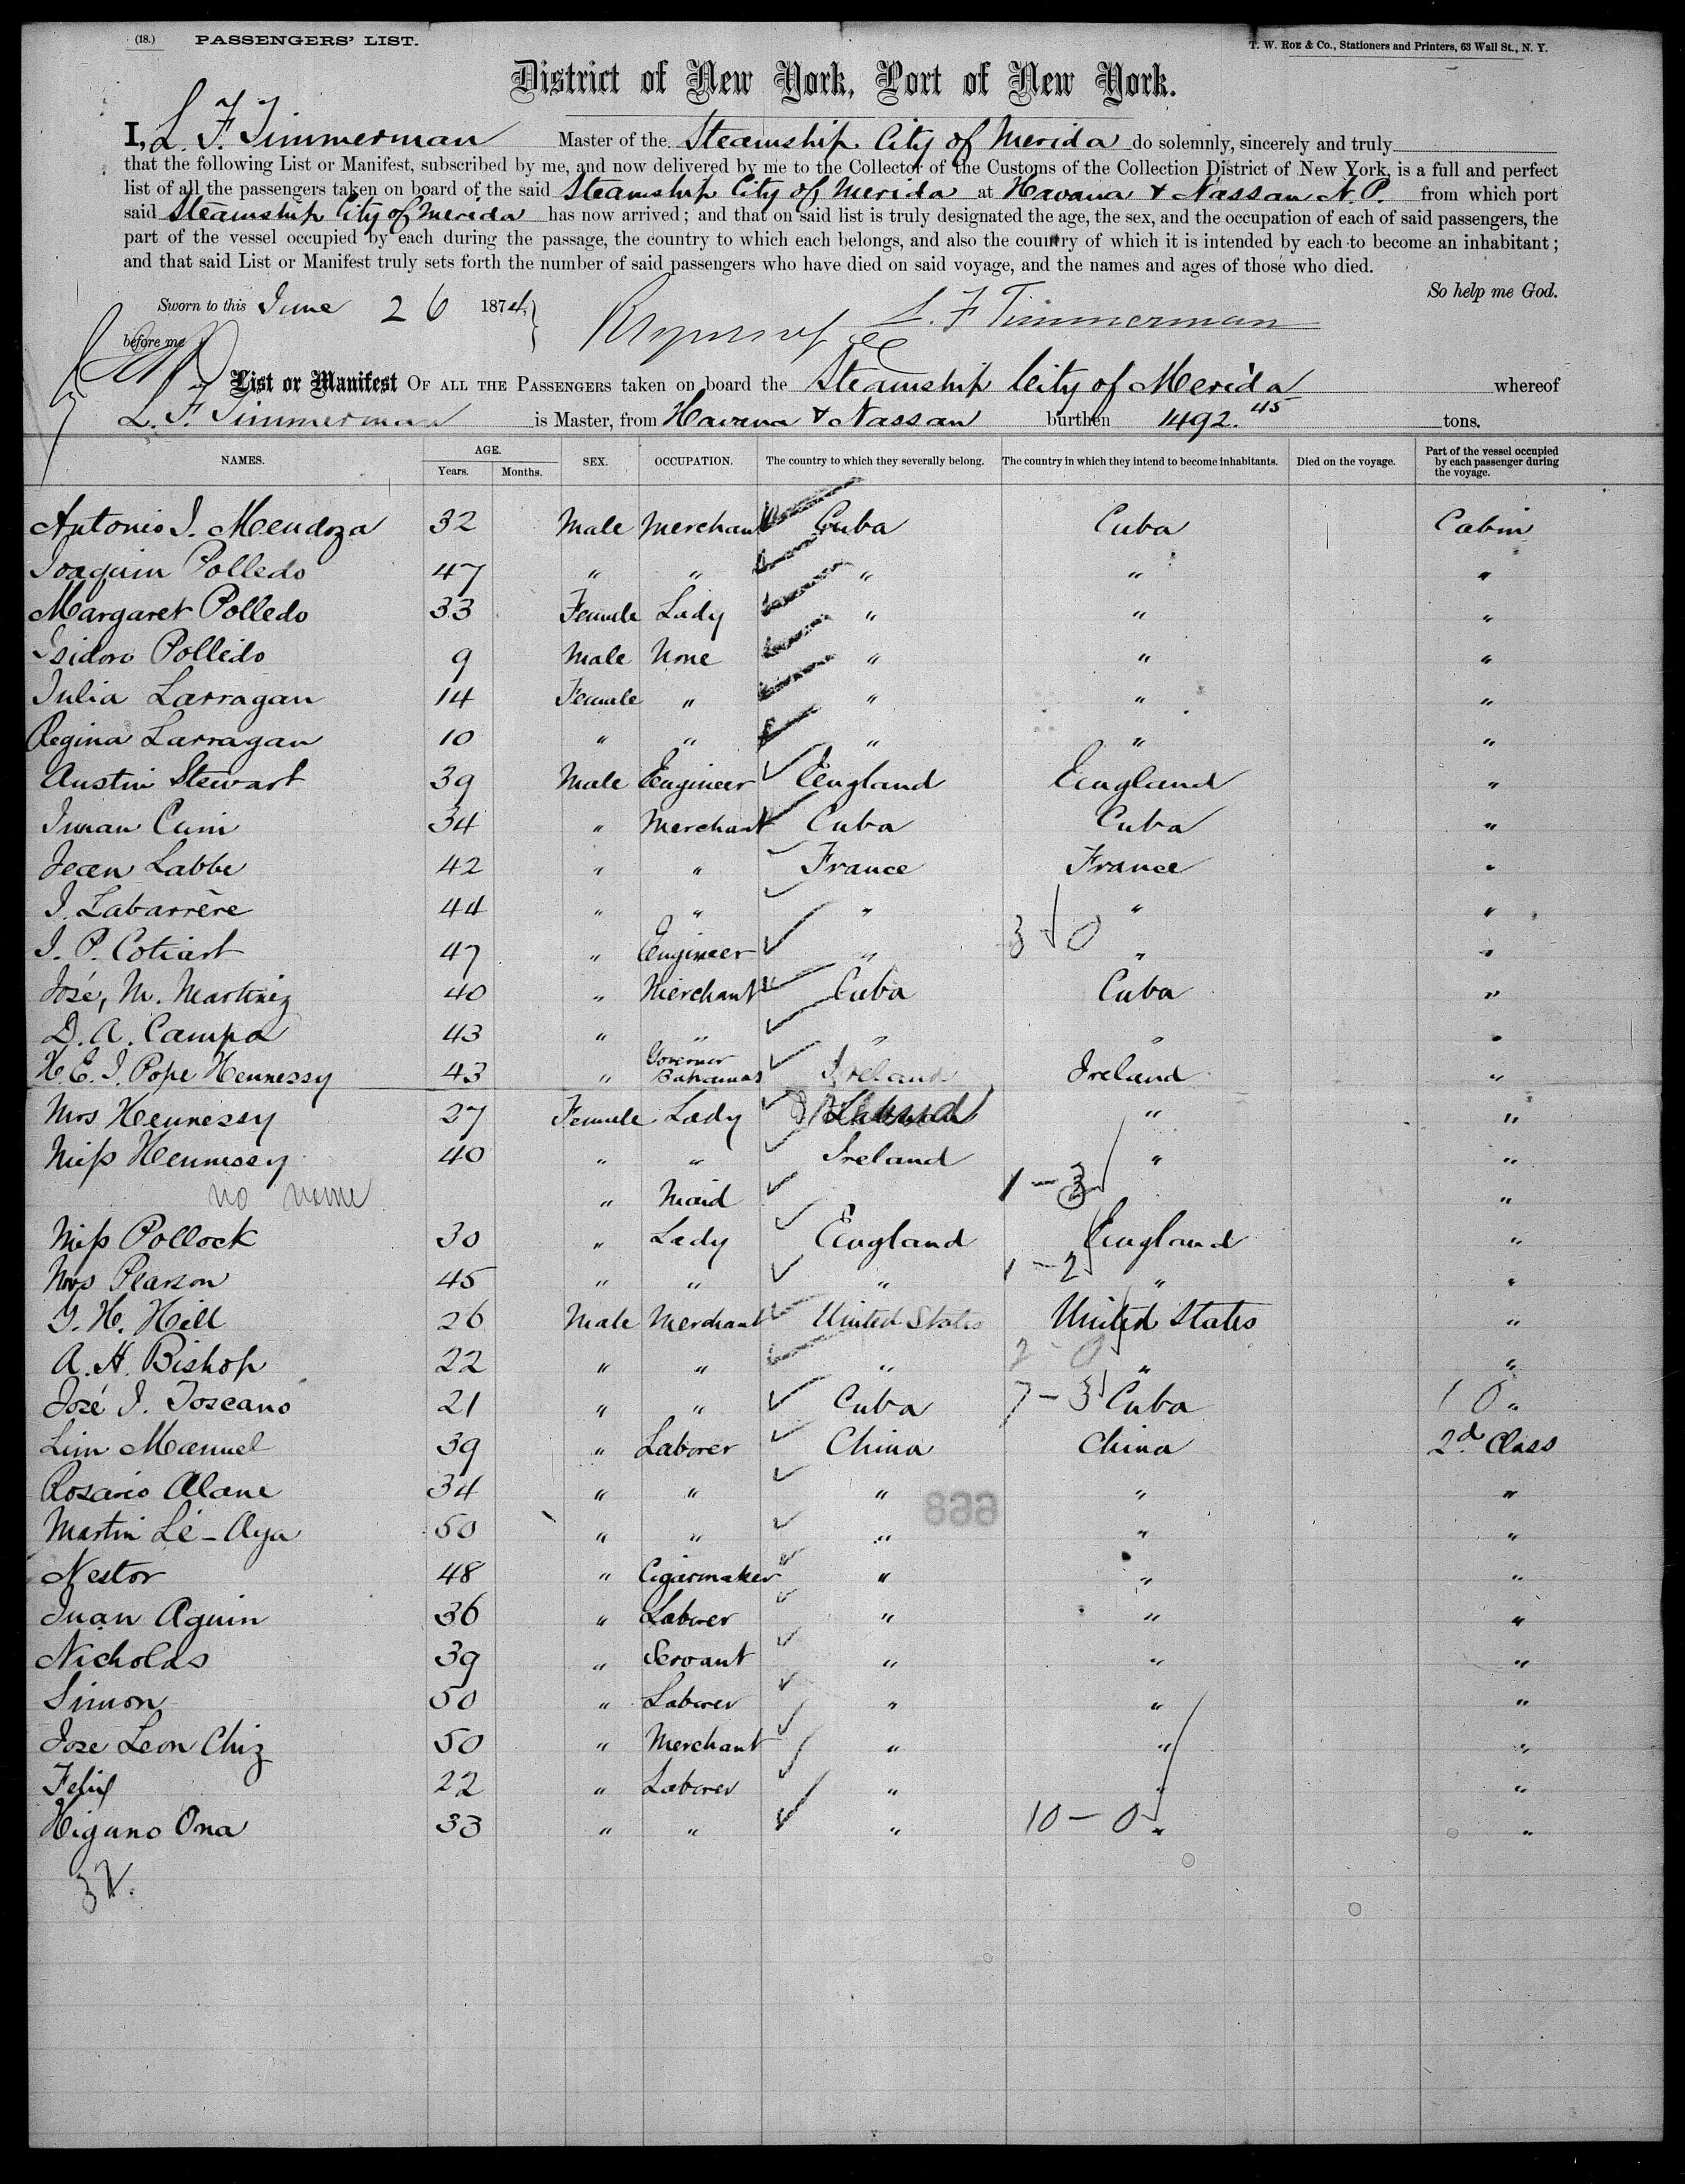 (18.) PASSENGERS' LIST. T. W. ROE & Co., Stationers and Printers, 63 Wall St., N. Y.
District of New York, Port of New York.
I, L. F. Timmerman Master of the Steamship City of Merida do solemnly, sincerely and truly
that the following List or Manifest, subscribed by me, and now delivered by me to the Collector of the Customs of the Collection District of New York, is a full and perfect
list of all the passengers taken on board of the said Steamship City of Merida at Havana & Nassau N. P. from which port
said Steamship City of Merida has now arrived; and that on said list is truly designated the age, the sex, and the occupation of each of said passengers, the
part of the vessel occupied by each during the passage, the country to which each belongs, and also the country of which it is intended by each to become an inhabitant;
and that said List or Manifest truly sets forth the number of said passengers who have died on said voyage, and the names and ages of those who died.
So help me God.
Sworn to this June 26 1874 L. F. Timmerman
before me
List or Manifest OF ALL THE PASSENGERS taken on board the Steamship City of Merida whereof
L. F. Timmerman is Master, from Havana & Nassau burthen 1492.45 tons.
NAMES. AGE. Years. Months. SEX. OCCUPATION. The country to which they severally belong. The country in which they intend to become inhabitants. Died on the voyage. Part of the vessel occupied by each passenger during the voyage.
Antonio I. Mendoza 32 Male Merchant Cuba Cuba Cabin
Joaquin Polledo 47 " " " " "
Margaret Polledo 33 Female Lady " " "
Isidoro Polledo 9 Male None " " "
Julia Larragan 14 Female " " " "
Regina Larragan 10 " " " " "
Austin Stewart 39 Male Engineer England England "
Juan Cuni 34 " Merchant Cuba Cuba "
Jean Labbe 42 " " France France "
J. Labarrère 44 " " " " "
J. P. Cotiart 47 " Engineer " 3 0 " "
José, M. Martinez 40 " Merchant Cuba Cuba "
D. A. Campa 43 " " " " "
H. E. J. Pope Hennessy 43 " Governor Bahamas Ireland Ireland "
Mrs Hennessy 27 Female Lady " "
Miss Hennessy 40 " " Ireland " "
no name " Maid 1 - 3 "
Miss Pollock 30 " Lady England England "
Mrs Pearson 45 " " " 1 - 2 " "
G. H. Hill 26 Male Merchant United States United States "
A. H. Bishop 22 " " " 2 - 0 " "
José I. Toscano 21 " " Cuba 7 - 3 Cuba 10 "
Lim Manuel 39 " Laborer China China 2d Class
Rosario Alane 34 " " " " "
Martin Lé-Aya 50 " " " " "
888
Nestor 48 " Cigarmaker " " "
Juan Aguin 36 " Laborer " " "
Nicholas 39 " Servant " " "
Simon 50 " Laborer " " "
Jose Leon Chiz 50 " Merchant " " "
Felix 22 " Laborer " " "
Higuno Ona 33 " " " 10 - 0 " "
32.